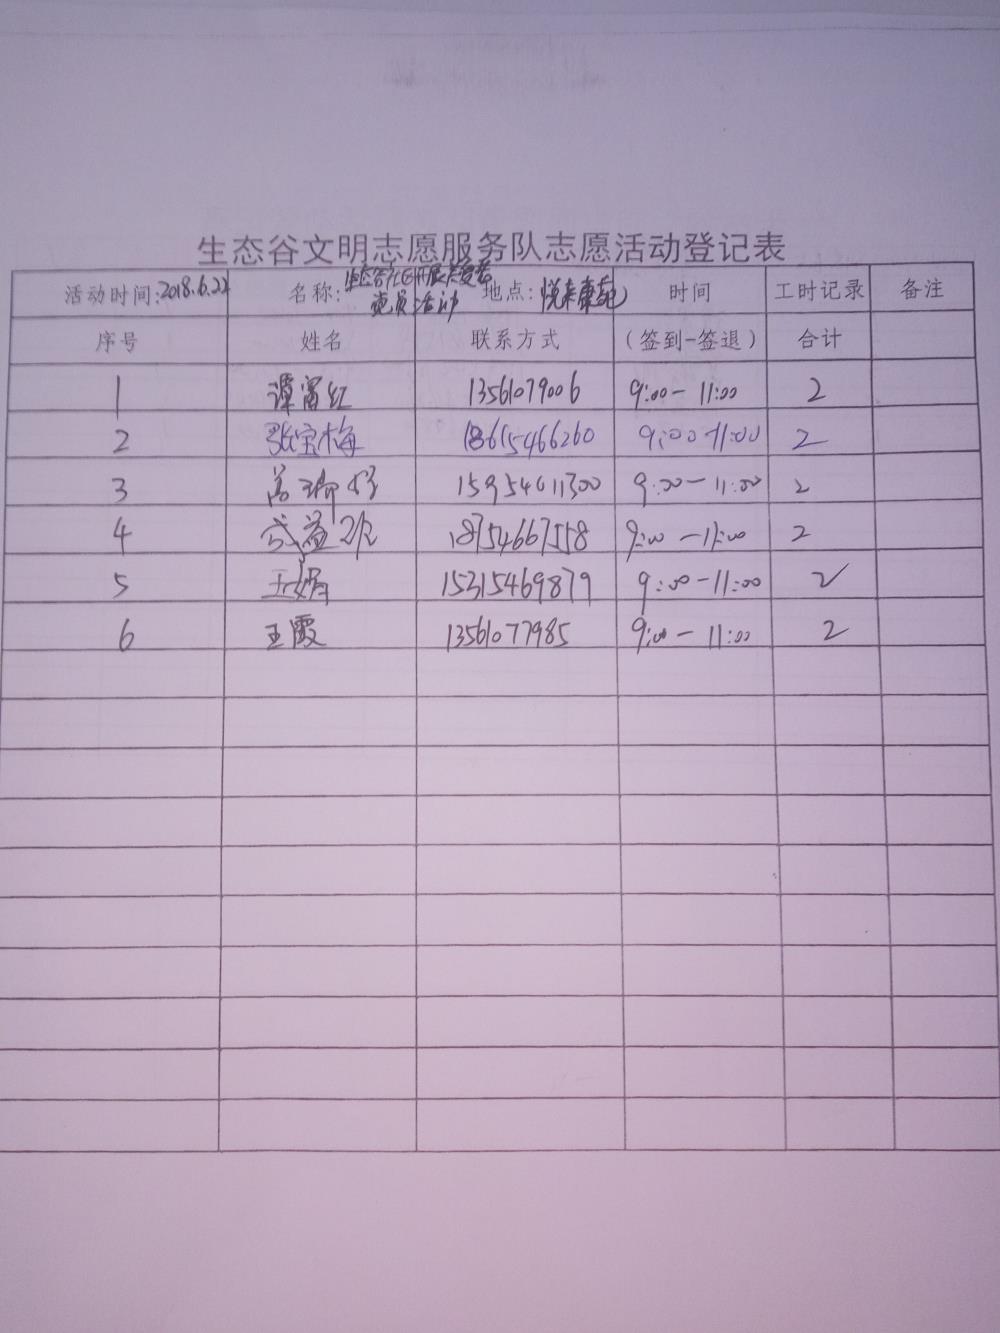 生态谷文明志愿服务队志愿活动登记表
活动时间:2018.6.22 名称:生态谷社区开展关爱老党员活动 地点:悦来康苑 时间 工时记录 备注
序号 姓名 联系方式 (签到-签退) 合计
1 谭富红 13561079006 9:00-11:00 2
2 张宝梅 18615466260 9:00-11:00 2
3 15954611300 9:00-11:00 2
4 18754667558 9:00-11:00 2
5 王娟 15315469879 9:00-11:00 2
6 王霞 13561077985 9:00-11:00 2